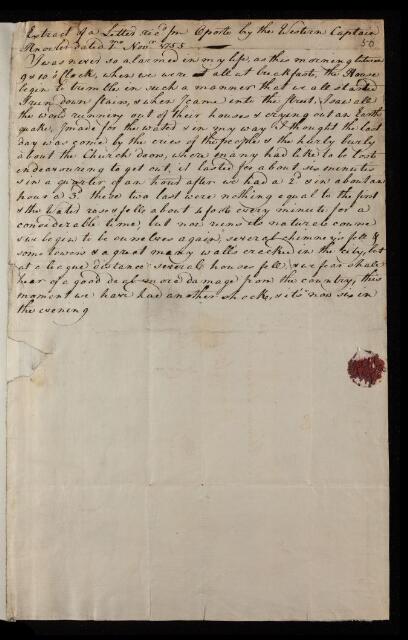 Extract of a Letter rec.d fm Oporto by the Western Captain
Knowles dated 1st Novr. 1755
50
I was never so alarmed in my life, as this morning between
9 & 10 o'Clock, when we were all at breakfast, the House
began to tremble in such a manner that we all started
I run down stairs, & when I came into the street, I saw all
the world running out of their houses & crying out an Earth
quake, I made for the water & in my way I thought the last
day was come by the cries of the people & the hurly burly
about the Church doors, where many had like to be lost
endeavouring to get out, it lasted for about six minutes
& in a quarter of an hour after we had a 2d. & in about an
hour a 3d. these two last were nothing equal to the first
& the Water rose & fell about 4 foot every minute for a
considerable time, but now runs its natural course
& we begin to be ourselves again, several chimneys fell &
some towers & a great many walls cracked in the City, but
at a league distance several houses fell, & we fear shall
hear of a good deal more damage from the country, this
moment we have had another shock, & it's now six in
the evening